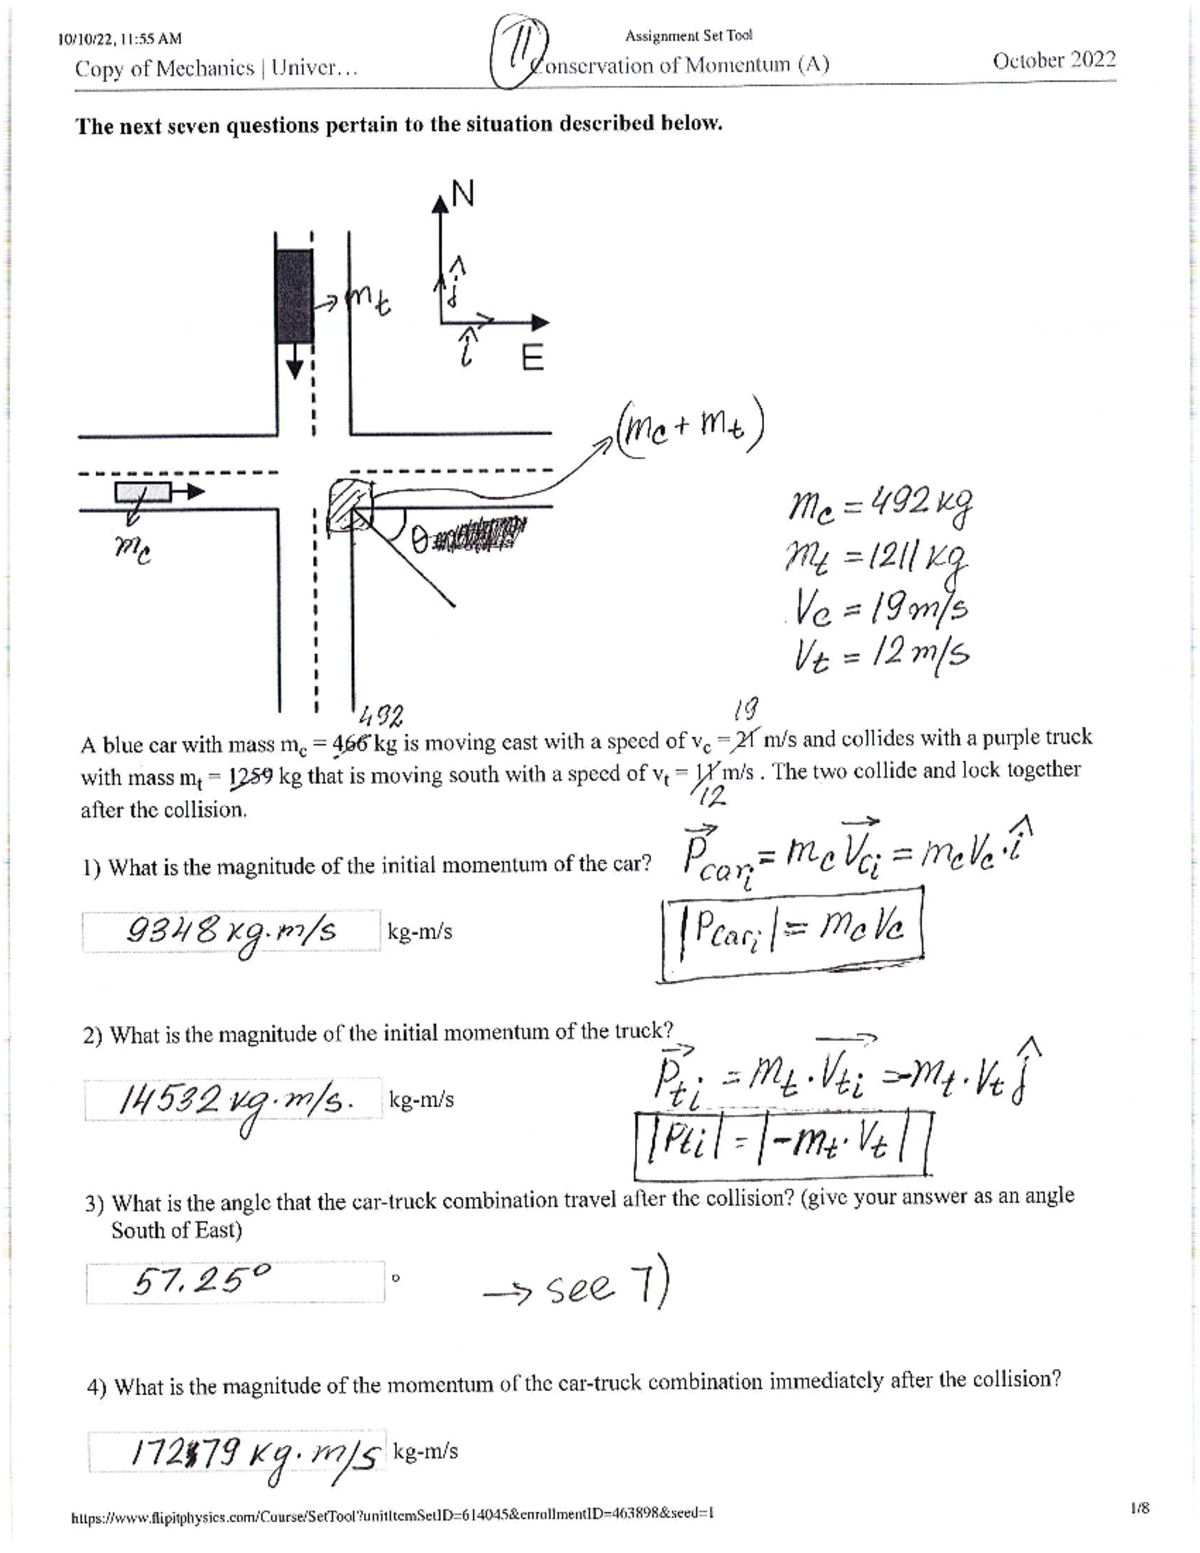 10/10/22, 11:55 AM
Assignment Set Tool
Copy of Mechanics | Univer…
11
Conservation of Momentum (A)
October 2022
The next seven questions pertain to the situation described below.
N
ĵ
→ mt
î
E
(mc + mt)
mc
θ
mc = 492 kg
mt = 1211 kg
Vc = 19 m/s
Vt = 12 m/s
492
19
A blue car with mass mc = 466 kg is moving east with a speed of vc = 21 m/s and collides with a purple truck
with mass mt = 1259 kg that is moving south with a speed of vt = 11 m/s . The two collide and lock together
12
after the collision.
1) What is the magnitude of the initial momentum of the car?
P⃗cari = mc V⃗ci = mcVc·î
9348 kg·m/s
kg-m/s
|Pcari| = mcVc
2) What is the magnitude of the initial momentum of the truck?
P⃗ti = mt·V⃗ti = -mt·Vt ĵ
14532 kg·m/s.
kg-m/s
|Pti| = |-mt·Vt|
3) What is the angle that the car-truck combination travel after the collision? (give your answer as an angle
South of East)
57.25°
°
→ see 7)
4) What is the magnitude of the momentum of the car-truck combination immediately after the collision?
kg·m/s
kg-m/s
https://www.flipitphysics.com/Course/SetTool?unitItemSetID=614045&enrollmentID=463898&seed=1
1/8